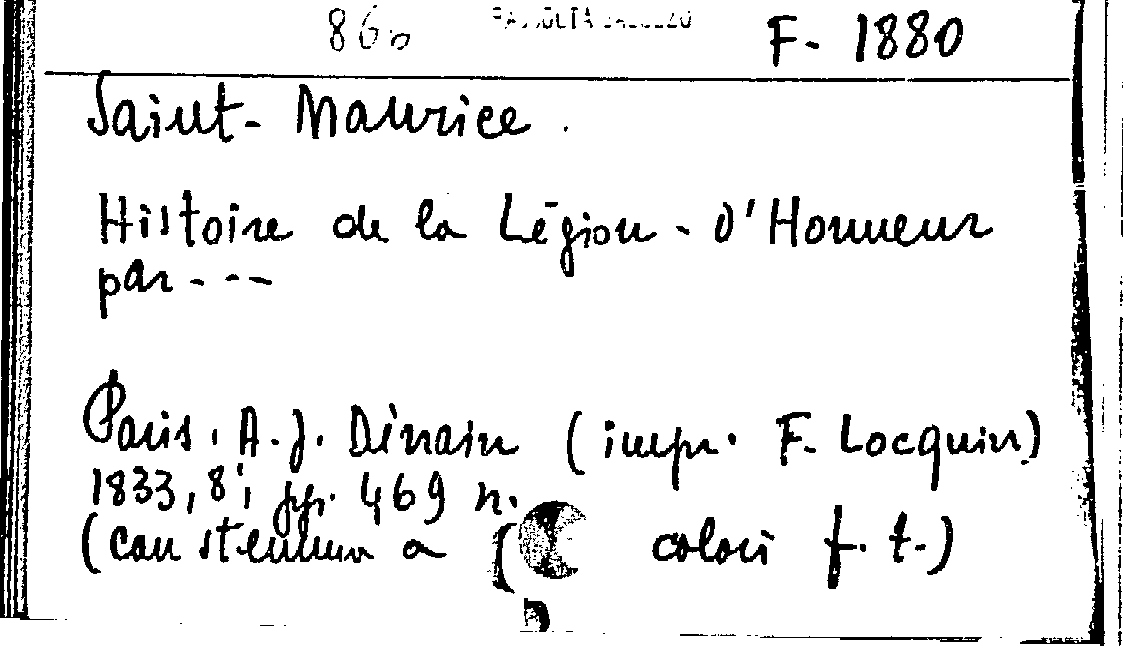 860 RACCOLTA SALUZZO F- 1880
Saint-Maurice.
Histoire de la Légion-d'Honneur
par---
Paris. A.J. Dénain (impr. F. Locquin)
1833, 8°, pp. 469 n.
(con stemma a colori f.t.)